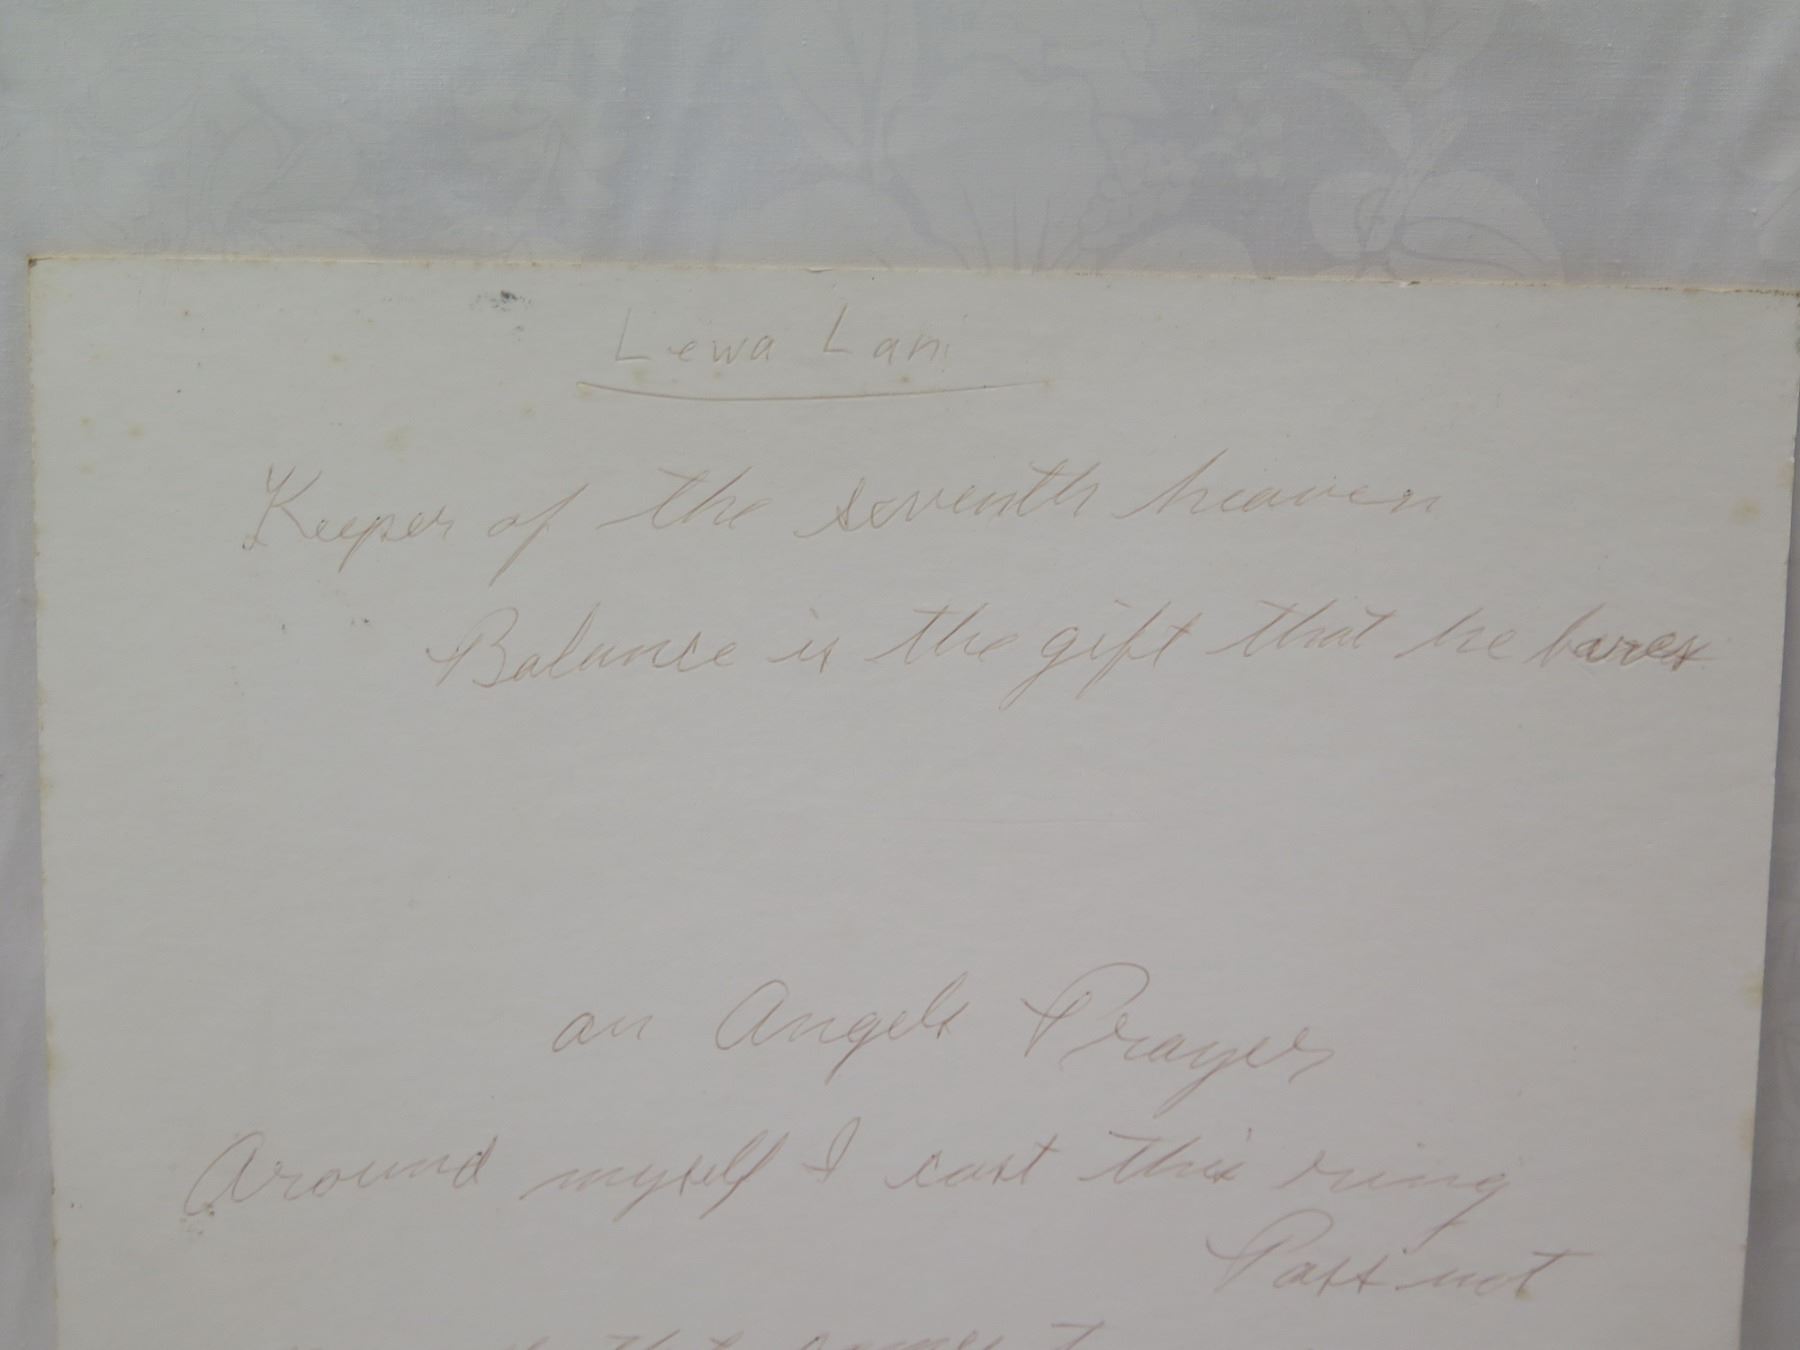 Lewa Lani
Keeper of the seventh heaven
Balance is the gift that he bares
an Angels Prayer
Around myself I cast this ring
Pass not